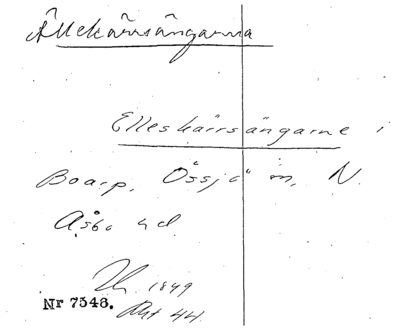 Ällekärrsängarna
Elleskärrsängarne i
Boarp, Össjö sn, N.
Åsbo hd.
1849
Nr 7548. Akt 44.